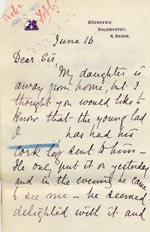 HOLSWORTHY,
N. DEVON.
June 16
Dear Sir
My daughter is
away from home, but I
thought you would like to
know that the young lad
I has had his
cork leg sent to him –
He only put it on yesterday
and in the evening he came
to see me – he seemed
delighted with it and